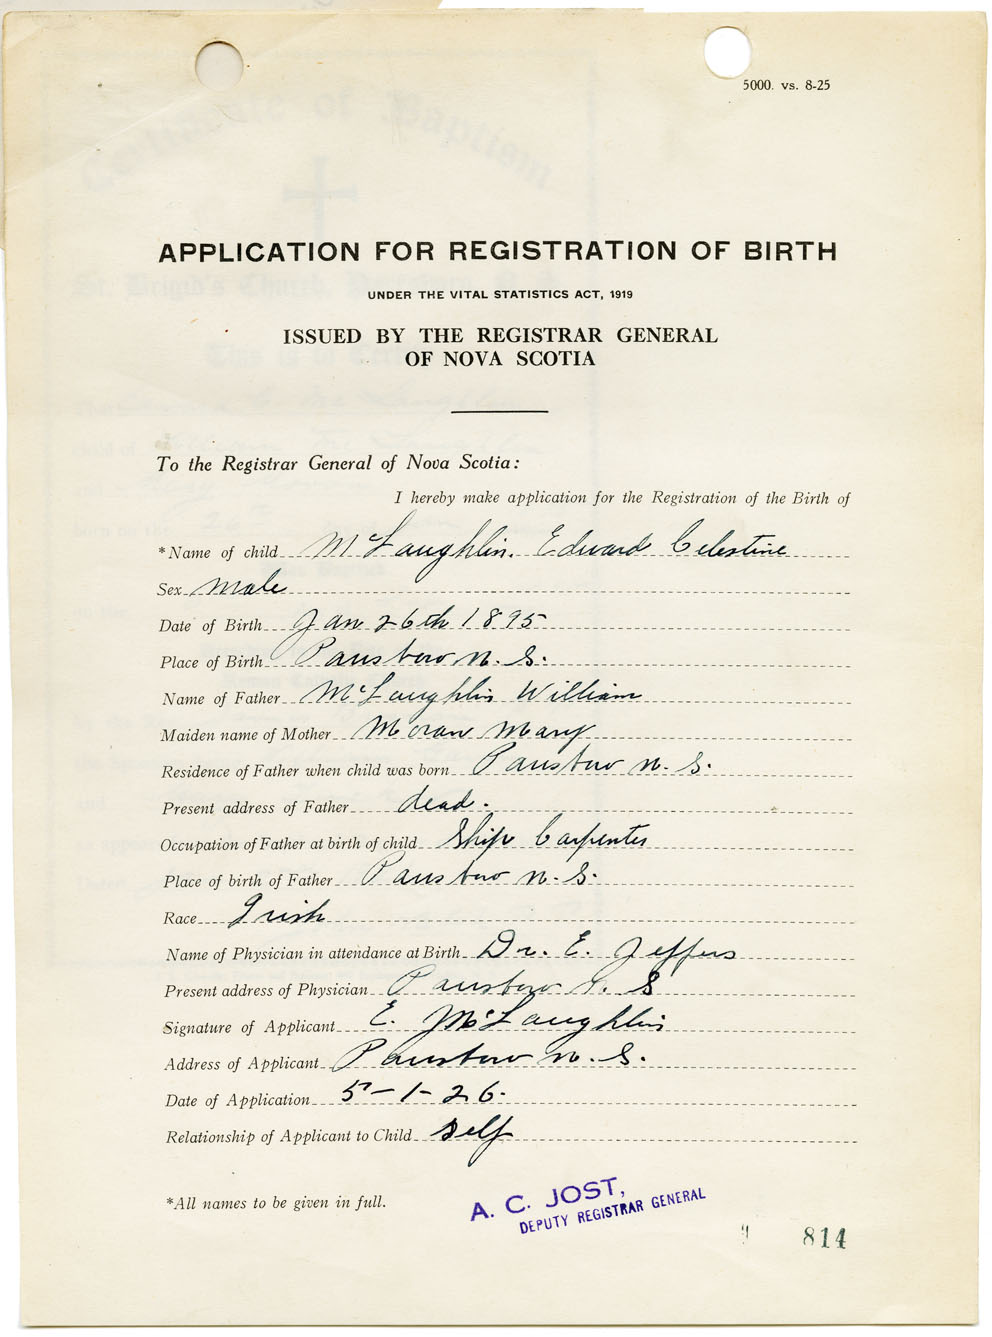 5000. vs. 8-25
APPLICATION FOR REGISTRATION OF BIRTH
UNDER THE VITAL STATISTICS ACT, 1919
ISSUED BY THE REGISTRAR GENERAL
OF NOVA SCOTIA
To the Registrar General of Nova Scotia:
I hereby make application for the Registration of the Birth of
*Name of child McLaughlin. Edward Celestine
Sex Male
Date of Birth Jan 26th 1895
Place of Birth Parrsboro N. S.
Name of Father McLaughlin William
Maiden name of Mother Moran Mary
Residence of Father when child was born Parrsboro N. S.
Present address of Father dead.
Occupation of Father at birth of child Ship Carpenter
Place of birth of Father Parrsboro N. S.
Race Irish
Name of Physician in attendance at Birth Dr. E. Jeffers
Present address of Physician Parrsboro N. S
Signature of Applicant E. McLaughlin
Address of Applicant Parrsboro N. S.
Date of Application 5-1-26.
Relationship of Applicant to Child self
*All names to be given in full.
A. C. JOST,
DEPUTY REGISTRAR GENERAL
814